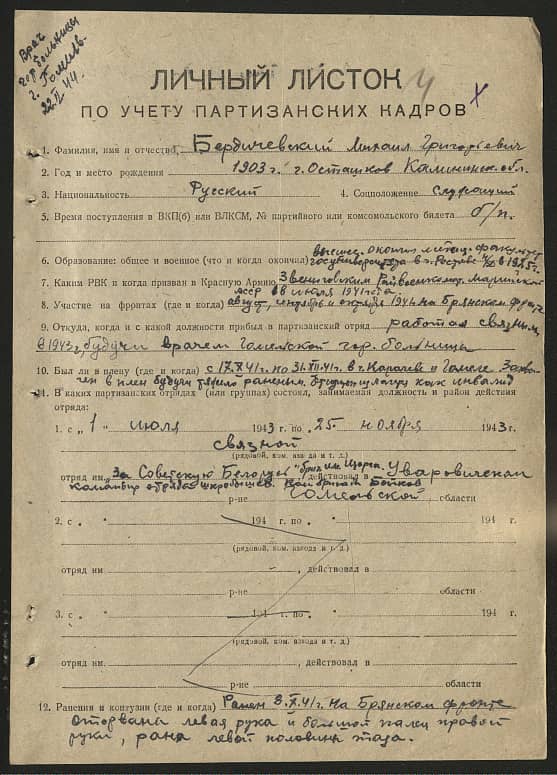 Врач
гор больницы
г. Гомель
22.II 44.
ЛИЧНЫЙ ЛИСТОК
ПО УЧЕТУ ПАРТИЗАНСКИХ КАДРОВ
1. Фамилия, имя и отчество Бердичевский Михаил Григорьевич
2. Год и место рождения 1903 г. г. Осташков Калининск. обл.
3. Национальность Русский 4. Соцположение служащий
5. Время поступления в ВКП(б) или ВЛКСМ, № партийного или комсомольского билета б/п.
высшее, окончил факультет
6. Образование: общее и военное (что и когда окончил) госуниверситета в г. Ростове в 1925 г.
7. Каким РВК и когда призван в Красную Армию Звениговским Райвоенкомат. Марийской
АССР 1941 года
8. Участие на фронтах (где и когда) август, сентябрь и октябрь 1941 на Брянском фронте
9. Откуда, когда и с какой должности прибыл в партизанский отряд работая связным
в 1943 г, будучи врачем Гомельской гор. больницы
10. Был ли в плену (где и когда) с 17.X 41 г. по 31.XII.41 г. в г. Карачеве и Гомеле. Захва-
чен в плен будучи тяжело раненым. как инвалид
11. В каких партизанских отрядах (или группах) состоял, занимаемая должность и район действия
отряда:
1. с „1" июля 1943 г. по „25" ноября 1943 г.
связной
(рядовой, ком. взвода и т. д.)
отряд им „За Советскую Белорусь" бриг. им. Щорса, действовал в Уваровичском
командир отряда Шкробышев. Ком бригады Бойков
р-не Гомельской области
2. с „ " 194 г. по „ " 194 г.
(рядовой, ком. взвода и т. д.)
отряд им , действовал в
р-не области
3. с „ " 194 г. по „ " 194 г.
(рядовой, ком. взвода и т. д.)
отряд им , действовал в
р-не области
12. Ранения и контузии (где и когда) Ранен 8.X.41 г. на Брянском фронте
оторвана левая рука и большой палец правой
руки, рана левой половины таза.